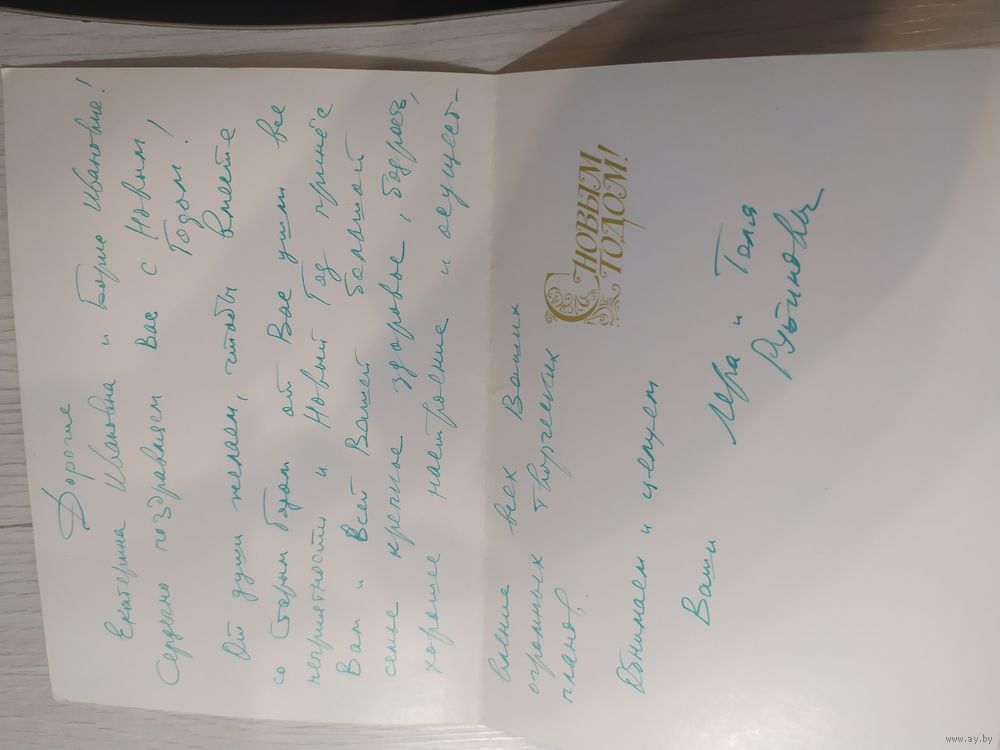 Дорогие
Екатерина Ивановна и Борис Иванович!
Сердечно поздравляем Вас с Новым
Годом!
От души желаем, чтобы вместе
со Старым Годом от Вас ушли все
неприятности и Новый Год принёс
Вам и Всей Вашей богатой
семье крепкое здоровье, бодрость,
хорошее настроение и осущест-
вление всех Ваших
огромных творческих
планов.
С НОВЫМ
ГОДОМ!
Обнимаем и целуем
Ваши Лера и Толя
www.ay.by